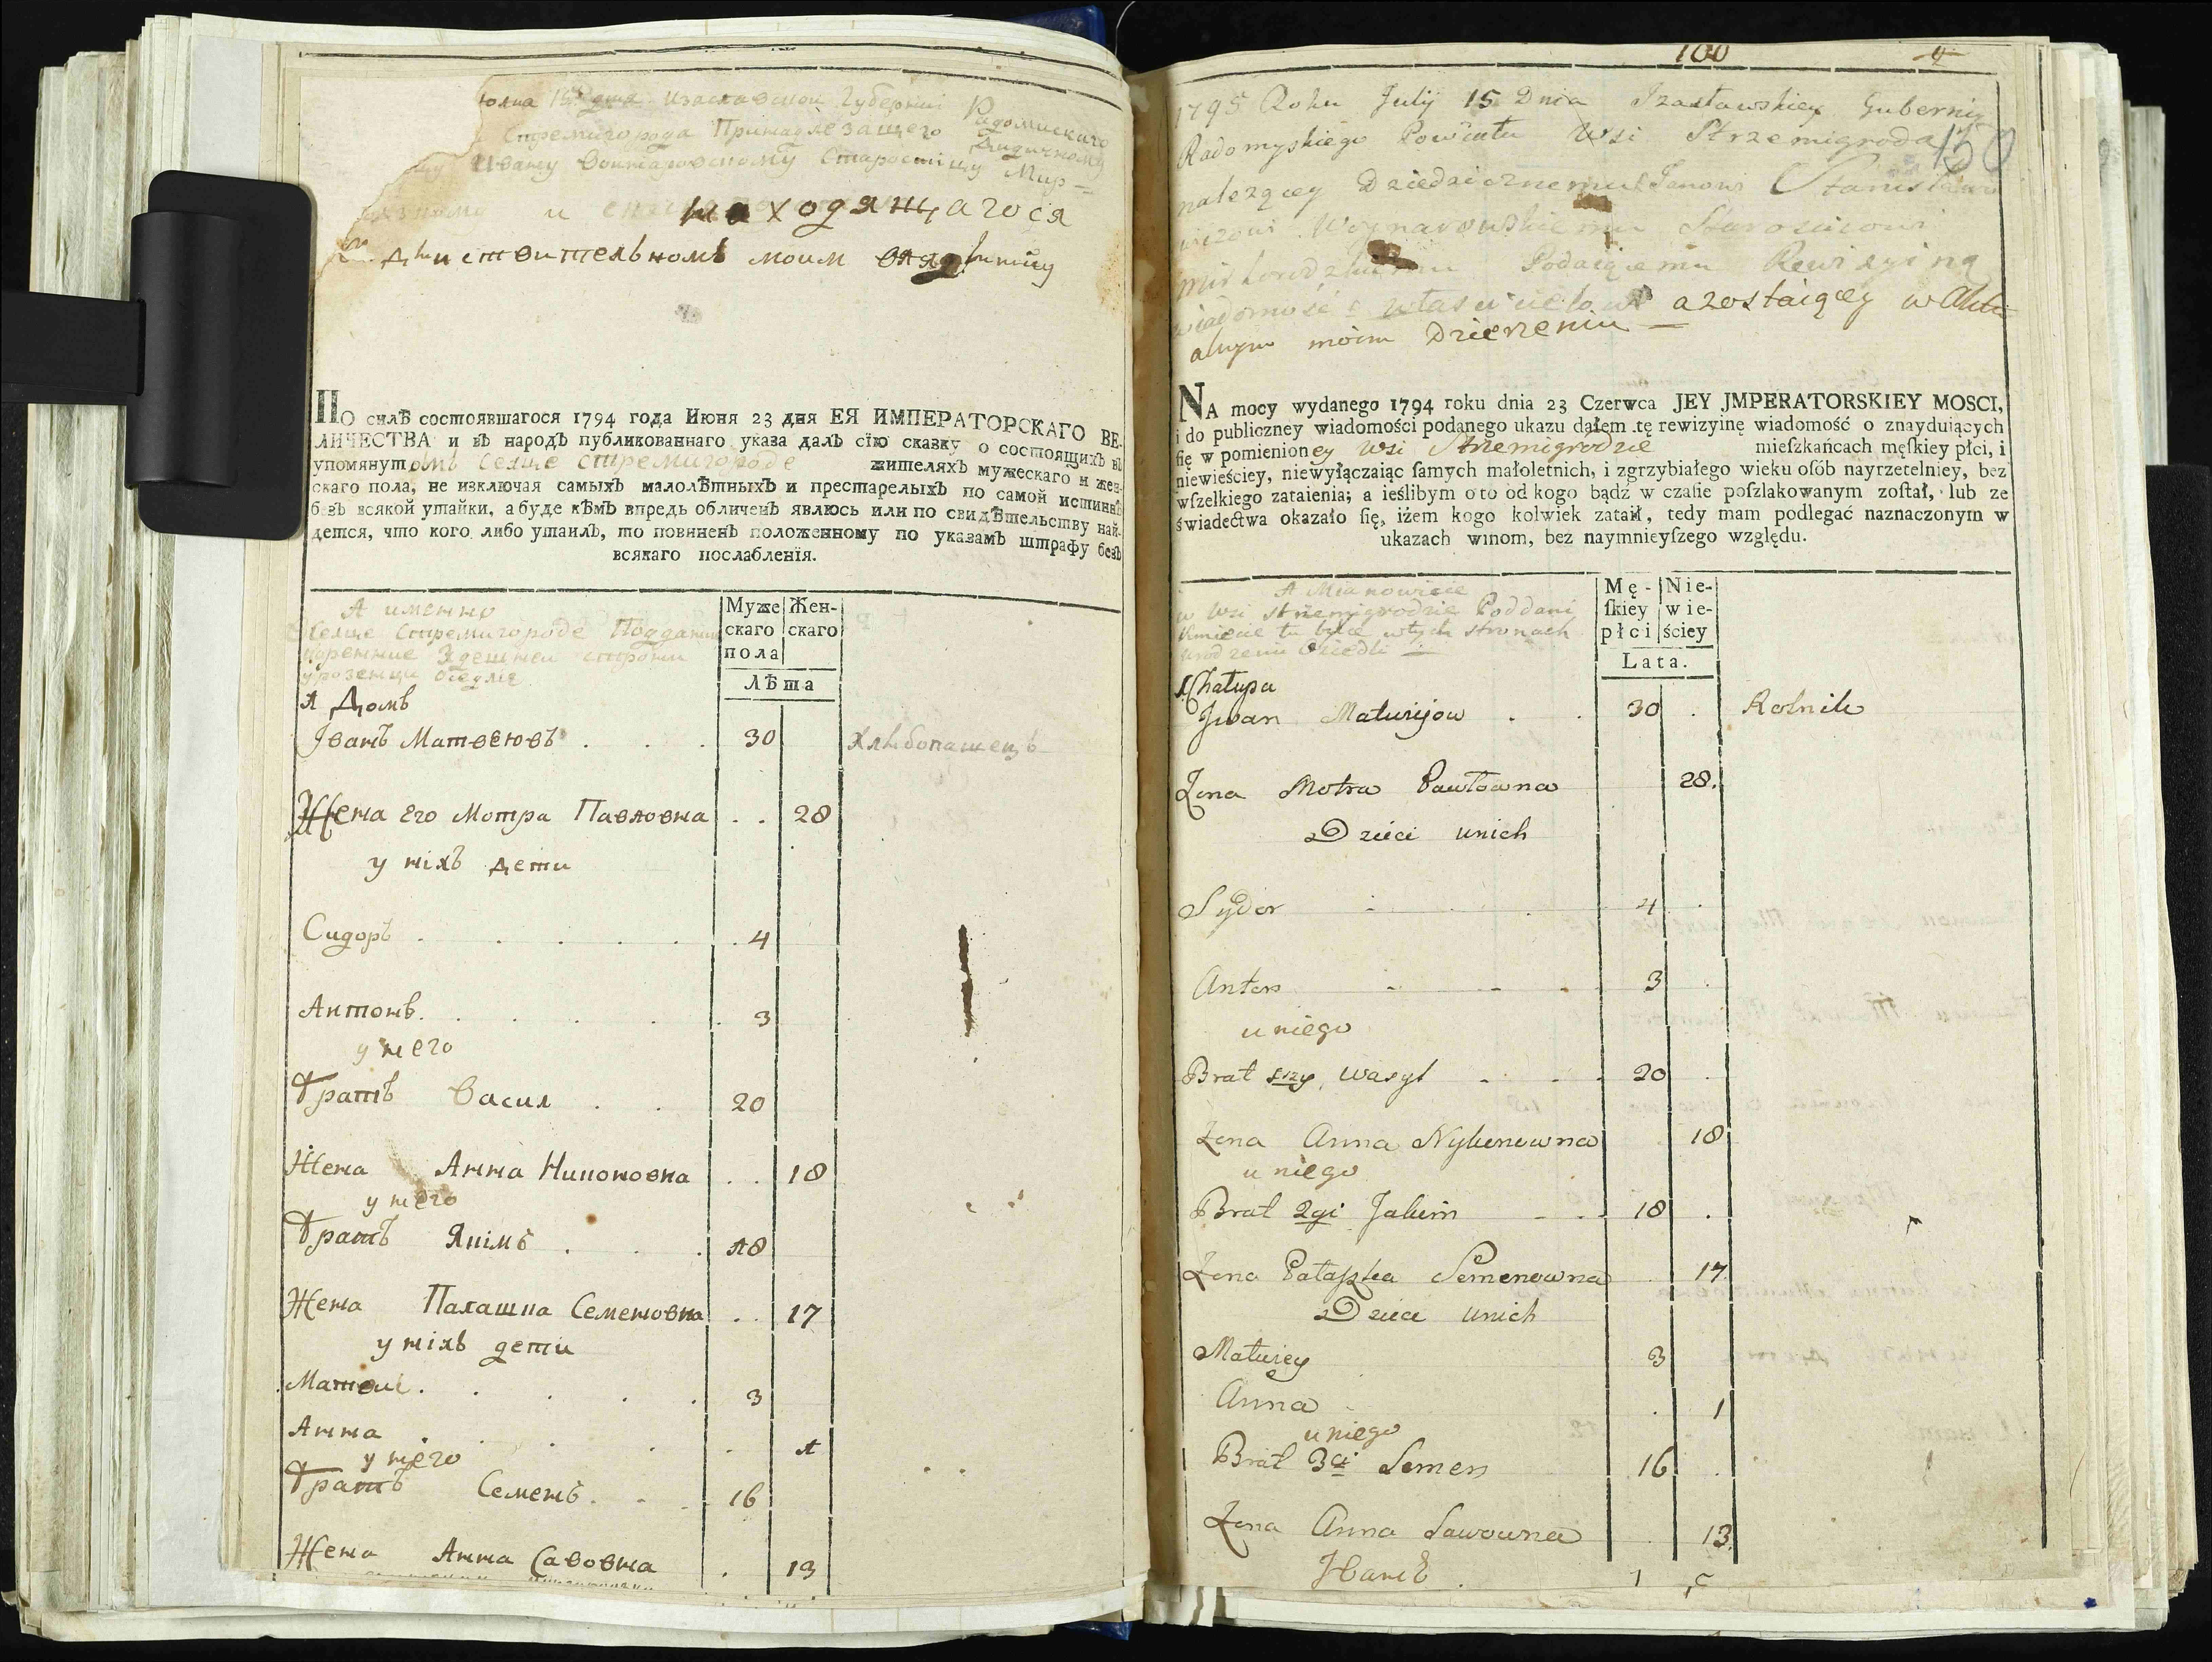 юлиа 15 дня Изаславской Губерніи Радомискаго
Стремигорода Принадлежащего
Ивану Старостичу Мир-
и находящагося
моим
По силѣ состоявшагося 1794 года Июня 23 дня ЕЯ ИМПЕРАТОРСКАГО ВЕ-
ЛИЧЕСТВА и въ народъ публикованнаго указа далъ сїю сказку о состоящихъ въ
упомянутомъ Селще Стремигороде жителяхъ мужескаго и жен-
скаго пола, не изключая самыхъ малолѣтныхъ и престарелыхъ по самой истиннѣ
безъ всякой утайки, а буде кѣмъ впредь обличенъ явлюсь или по свидѣтельству най-
дется, что кого либо утаилъ, то повиненъ положенному по указамъ штрафу безъ
всякаго послабленїя.
А именно
Селще Стремигороде Поддание
коренние Здешней сторони
уроземци
Муже Жен-
скаго скаго
пола
Лѣта
1 Домъ
Іванъ Матвеювъ . . . 30 Хлѣбопашецъ
Жена Его Мотра Павловна . . 28
у ніхъ дети
Сидоръ . . . . . . 4
Антонъ . . . . . 3
у него
Братъ Васил . . 20
Жена Анна Никоновна . . 18
у него
Братъ Якімъ . . . 18
Жена Палашка Семеновна . . 17
у ніхъ дети
Матвей . . . . . 3
Анна . . . . . 1
у него
Братъ Семенъ . . . 16
Жена Анна Савовна . 13
100 4
1795 Roku July 15 Dnia Izasławskiey Gubernij
Radomyskiego Powiatu Wsi Strzemigroda 150
należącey Dziedzicznemu Janowi Stanisławo
wiczowi Woynarowskiemu Starościcowi
Podaiącemu Rewizyiną
wiadomość azostaiącey w Aktu
alnym moim Dzierżeniu —
NA mocy wydanego 1794 roku dnia 23 Czerwca JEY JMPERATORSKIEY MOSCI,
i do publiczney wiadomości podanego ukazu dałem tę rewizyinę wiadomość o znayduiących
ſię w pomienioney Wsi Strzemigrodzie mieſzkańcach męſkiey płci, i
niewieściey, niewyłączaiąc ſamych małoletnich, i zgrzybiałego wieku oſób nayrzetelniey, bez
wſzelkiego zataienia; a ieślibym o to od kogo bądź w czaſie poſzlakowanym zoſtał, lub ze
świadectwa okazało ſię, iżem kogo kolwiek zataił, tedy mam podlegać naznaczonym w
ukazach winom, bez naymnieyſzego względu.
A Mianowicie
w Wsi Strzemigrodzie Poddani
Kmiecie tu w tych stronach
urodzeni Osiedli
Mę- Nie-
ſkiey wie-
płci ściey
Lata.
1 Chałupa
Jwan Matwijow . . 30 . Rolnik
Żona Motra Pawłowna 28.
Dzieci unich
Sydor . . 4 .
Anton - - - . 3 .
u niego
Brat 1szy Wasyl - . . 20 .
Żona Anna Nykonowna . 18
u niego
Brat 2gi Jakim - - . 18 .
Żona Pałaszka Semenowna . 17
Dzieci unich
Matwiey 3
Anna . 1
u niego
Brat 3ci Semen 16 .
Żona Anna Sawowna . 13.